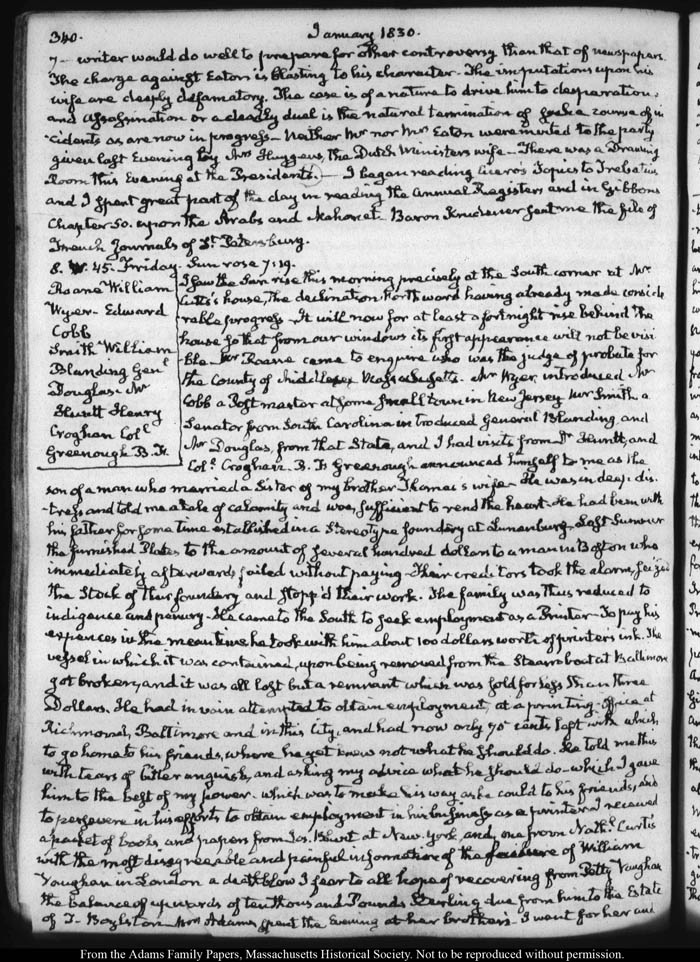 340.
January 1830.
7 — writer would do well to prepare for other controversy than that of newspapers.
The charge against Eaton is blasting to his character. The imputations upon his
wife are deeply defamatory. The case is of a nature to drive him to desperation,
and assassination or a deadly duel is the natural termination of such a course of in
cidents as are now in progress — Neither Mr nor Mrs Eaton were invited to the party
given last Evening by Mrs Huygens, the Dutch Ministers wife — There was a Drawing
Room this Evening at the Presidents. — I began reading Cicero's Topics to Trebatius
and I spent great part of the day in reading the Annual Registers and in Gibbons
Chapter 50. upon the Arabs and Mahomet. Baron Krudener sent me the file of
French Journals of St. Petersburg.
8. IV. 45. Friday. Sun rose 7:19.
Roane William
Wyer - Edward
Cobb
Smith William
Blanding Genl
Douglas. Mr
Huntt Henry
Croghan Coll
Greenough B. F.
I saw the Sun rise this morning precisely at the South corner at Mr
Cutts's house, the declination Northward having already made conside
rable progress — It will now for at least a fortnight rise behind the
house so that from our windows its first appearance will not be visi
ble — Mr Roane came to enquire who was the judge of probate for
the County of Middlesex Massachusetts. Mr Wyer introduced Mr
Cobb a Postmaster at some small town in New Jersey Mr Smith a
Senator from South Carolina introduced General Blanding and
Mr Douglas, from that State, and I had visits from Dr Huntt, and
Coll. Croghan. B. F. Greenough announced himself to me as the
son of a man who married a Sister of my brother Thomas's wife — He was in deep dis
tress and told me a tale of calamity and woe, sufficient to rend the heart. He had been with
his father for some time established in a Stereotype foundery at Lunenburg. Last Summer
the furnished Plates to the amount of several hundred dollars to a man in Boston who
immediately afterwards failed without paying. Their creditors took the alarm, seized
the Stock of their foundery and stopp'd their work. The family was thus reduced to
indigence and penury. He came to the South to seek employment as a Printer. To pay his
expences in the meantime he took with him about 100 dollars worth of printers ink. The
vessel in which it was contained, upon being removed from the Steam boat at Baltimore
got broken, and it was all lost but a remnant which was sold for less than three
Dollars. He had in vain attempted to obtain employment, at a printing-office at
Richmond, Baltimore and in this City, and had now only 75 cents left with which
to go home to his friends, where he yet knew not what he should do. He told me this
with tears of bitter anguish, and asking my advice what he should do — which I gave
him to the best of my power. which was to make his way as he could to his friends, and
to persevere in his efforts to obtain employment in his business as a printer I received
a packet of books, and papers from Jos. Blunt at New York, and one from Nathl. Curtis
with the most disagreeable and painful information of the failure of William
Vaughan in London a deathblow I fear to all hope of recovering from Petty Vaughan
the balance of upwards of ten thousand Pounds Sterling due from him to the Estate
of T. Boylston. Mrs Adams spent the Evening at her brothers. I went for her and
From the Adams Family Papers, Massachusetts Historical Society. Not to be reproduced without permission.